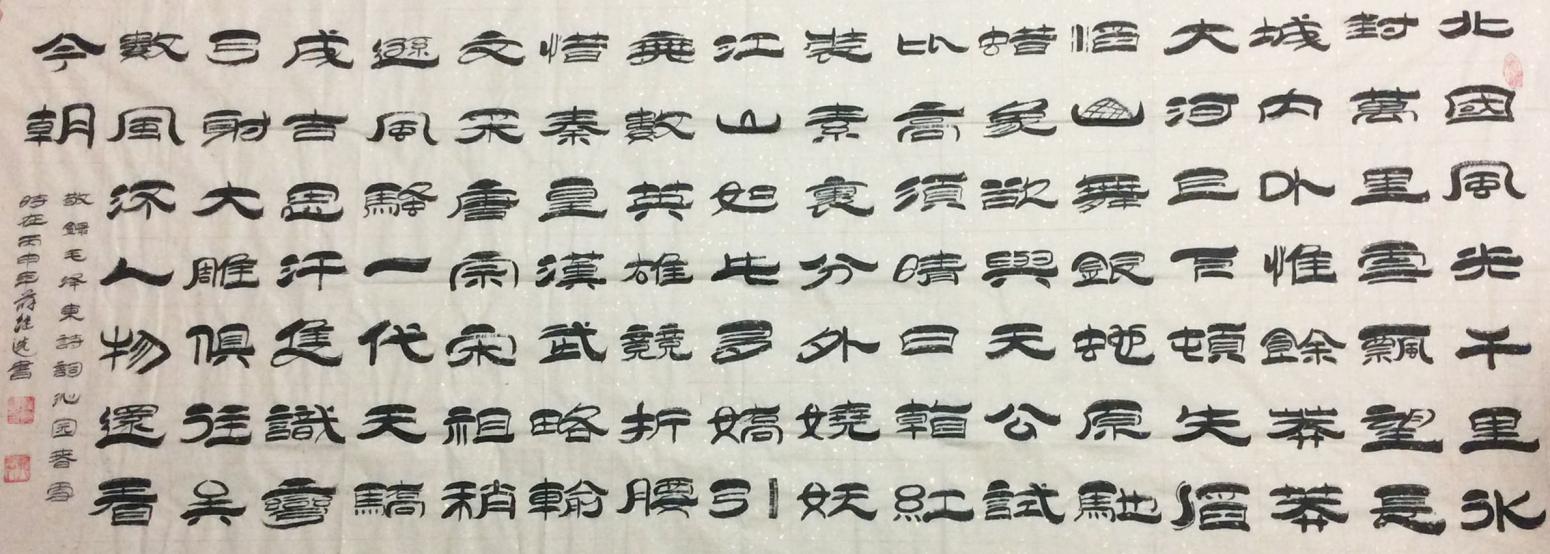 北國風光千里氷
封萬里雪飄望長
城内外惟餘莽莽
大河上下頓失滔
滔山舞銀蛇原馳
蜡象欲與天公試
比高須晴日看紅
裝素裹分外嬈妖
江山如此多嬌引
無數英雄競折腰
惜秦皇漢武略輸
文采唐宗宋祖稍
遜風騷一代天驕
成吉思汗隻識彎
弓射大雕俱往矣
數風流人物還看
今朝
敬録毛泽東詩詞沁园春雪
時在丙申年書